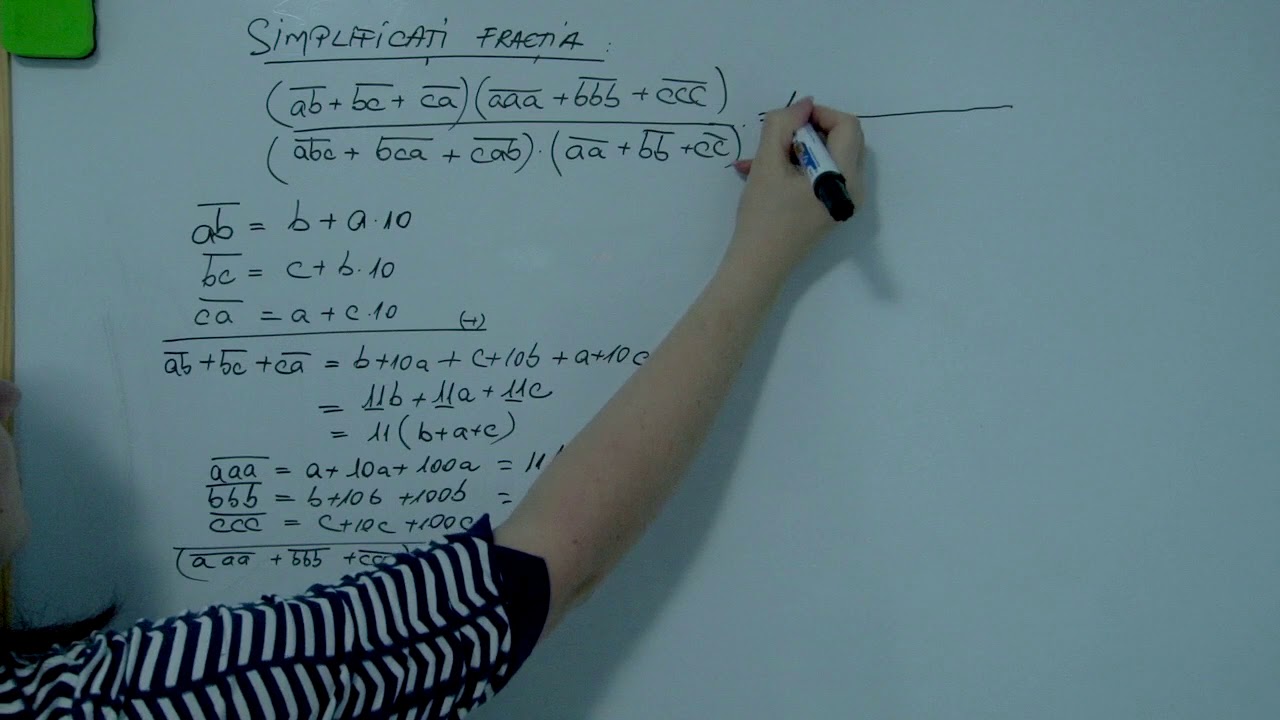 SIMPLIFICAȚI FRACȚIA :
(a̅b̅ + b̅c̅ + c̅a̅)(a̅a̅a̅ + b̅b̅b̅ + c̅c̅c̅)
(a̅b̅c̅ + b̅c̅a̅ + c̅a̅b̅)·(a̅a̅ + b̅b̅ + c̅c̅)
=
a̅b̅ = b + a·10
b̅c̅ = c + b·10
c̅a̅ = a + c·10 (+)
a̅b̅ + b̅c̅ + c̅a̅ = b+10a + c+10b + a+10c
= 11b + 11a + 11c
= 11(b+a+c)
a̅a̅a̅ = a+10a+100a = 11
b̅b̅b̅ = b+10b+100b =
c̅c̅c̅ = c+10c+100c
(a̅a̅a̅ + b̅b̅b̅ + c̅c̅